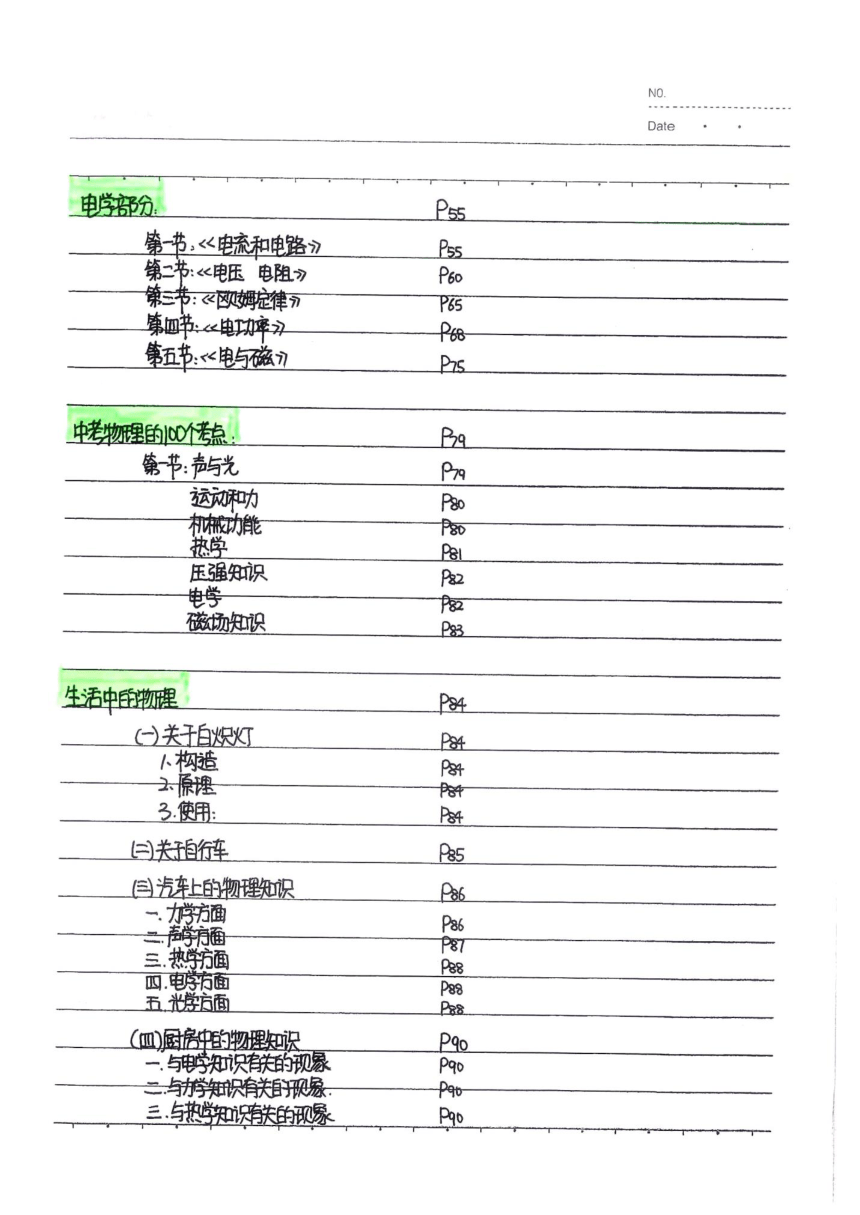 NO.
Date
电学部分: P55
第一节:《电流和电路》 P55
第二节:《电压 电阻》 P60
第三节:《欧姆定律》 P65
第四节:《电功率》 P68
第五节:《电与磁》 P75
中考物理的100个考点: P79
第一节:声与光 P79
运动和力 P80
机械功能 P80
热学 P81
压强知识 P82
电学 P82
磁场知识 P83
生活中的物理 P84
(一)关于白炽灯 P84
1、构造 P84
2、原理 P84
3.使用: P84
(二)关于自行车 P85
(三)汽车上的物理知识 P86
一.力学方面 P86
二.声学方面 P87
三.热学方面 P88
四.电学方面 P88
五.光学方面 P88
(四)厨房中的物理知识 P90
一.与电学知识有关的现象 P90
二.与力学知识有关的现象. P90
三.与热学知识有关的现象 P90